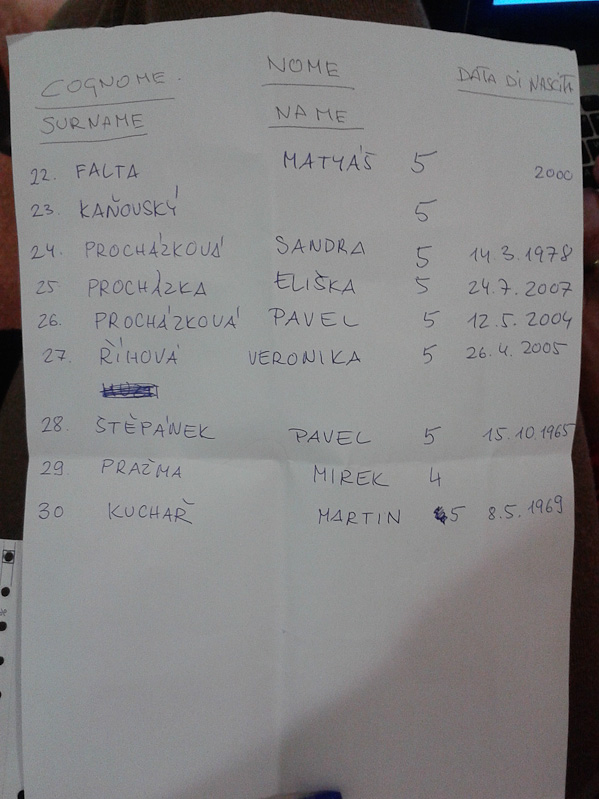 COGNOME. NOME DATA DI NASCITA
SURNAME NAME
22. FALTA MATYÁŠ 5 2000
23. KAŇOUSKÝ 5
24. PROCHÁZKOVÁ SANDRA 5 14.3.1978
25 PROCHÁZKA ELIŠKA 5 24.7.2007
26. PROCHÁZKOVÁ PAVEL 5 12.5.2004
27. ŘÍHOVÁ VERONIKA 5 26.4.2005
28. ŠTĚPÁNEK PAVEL 5 15.10.1965
29. PRAŽMA MIREK 4
30 KUCHAŘ MARTIN 5 8.5.1969